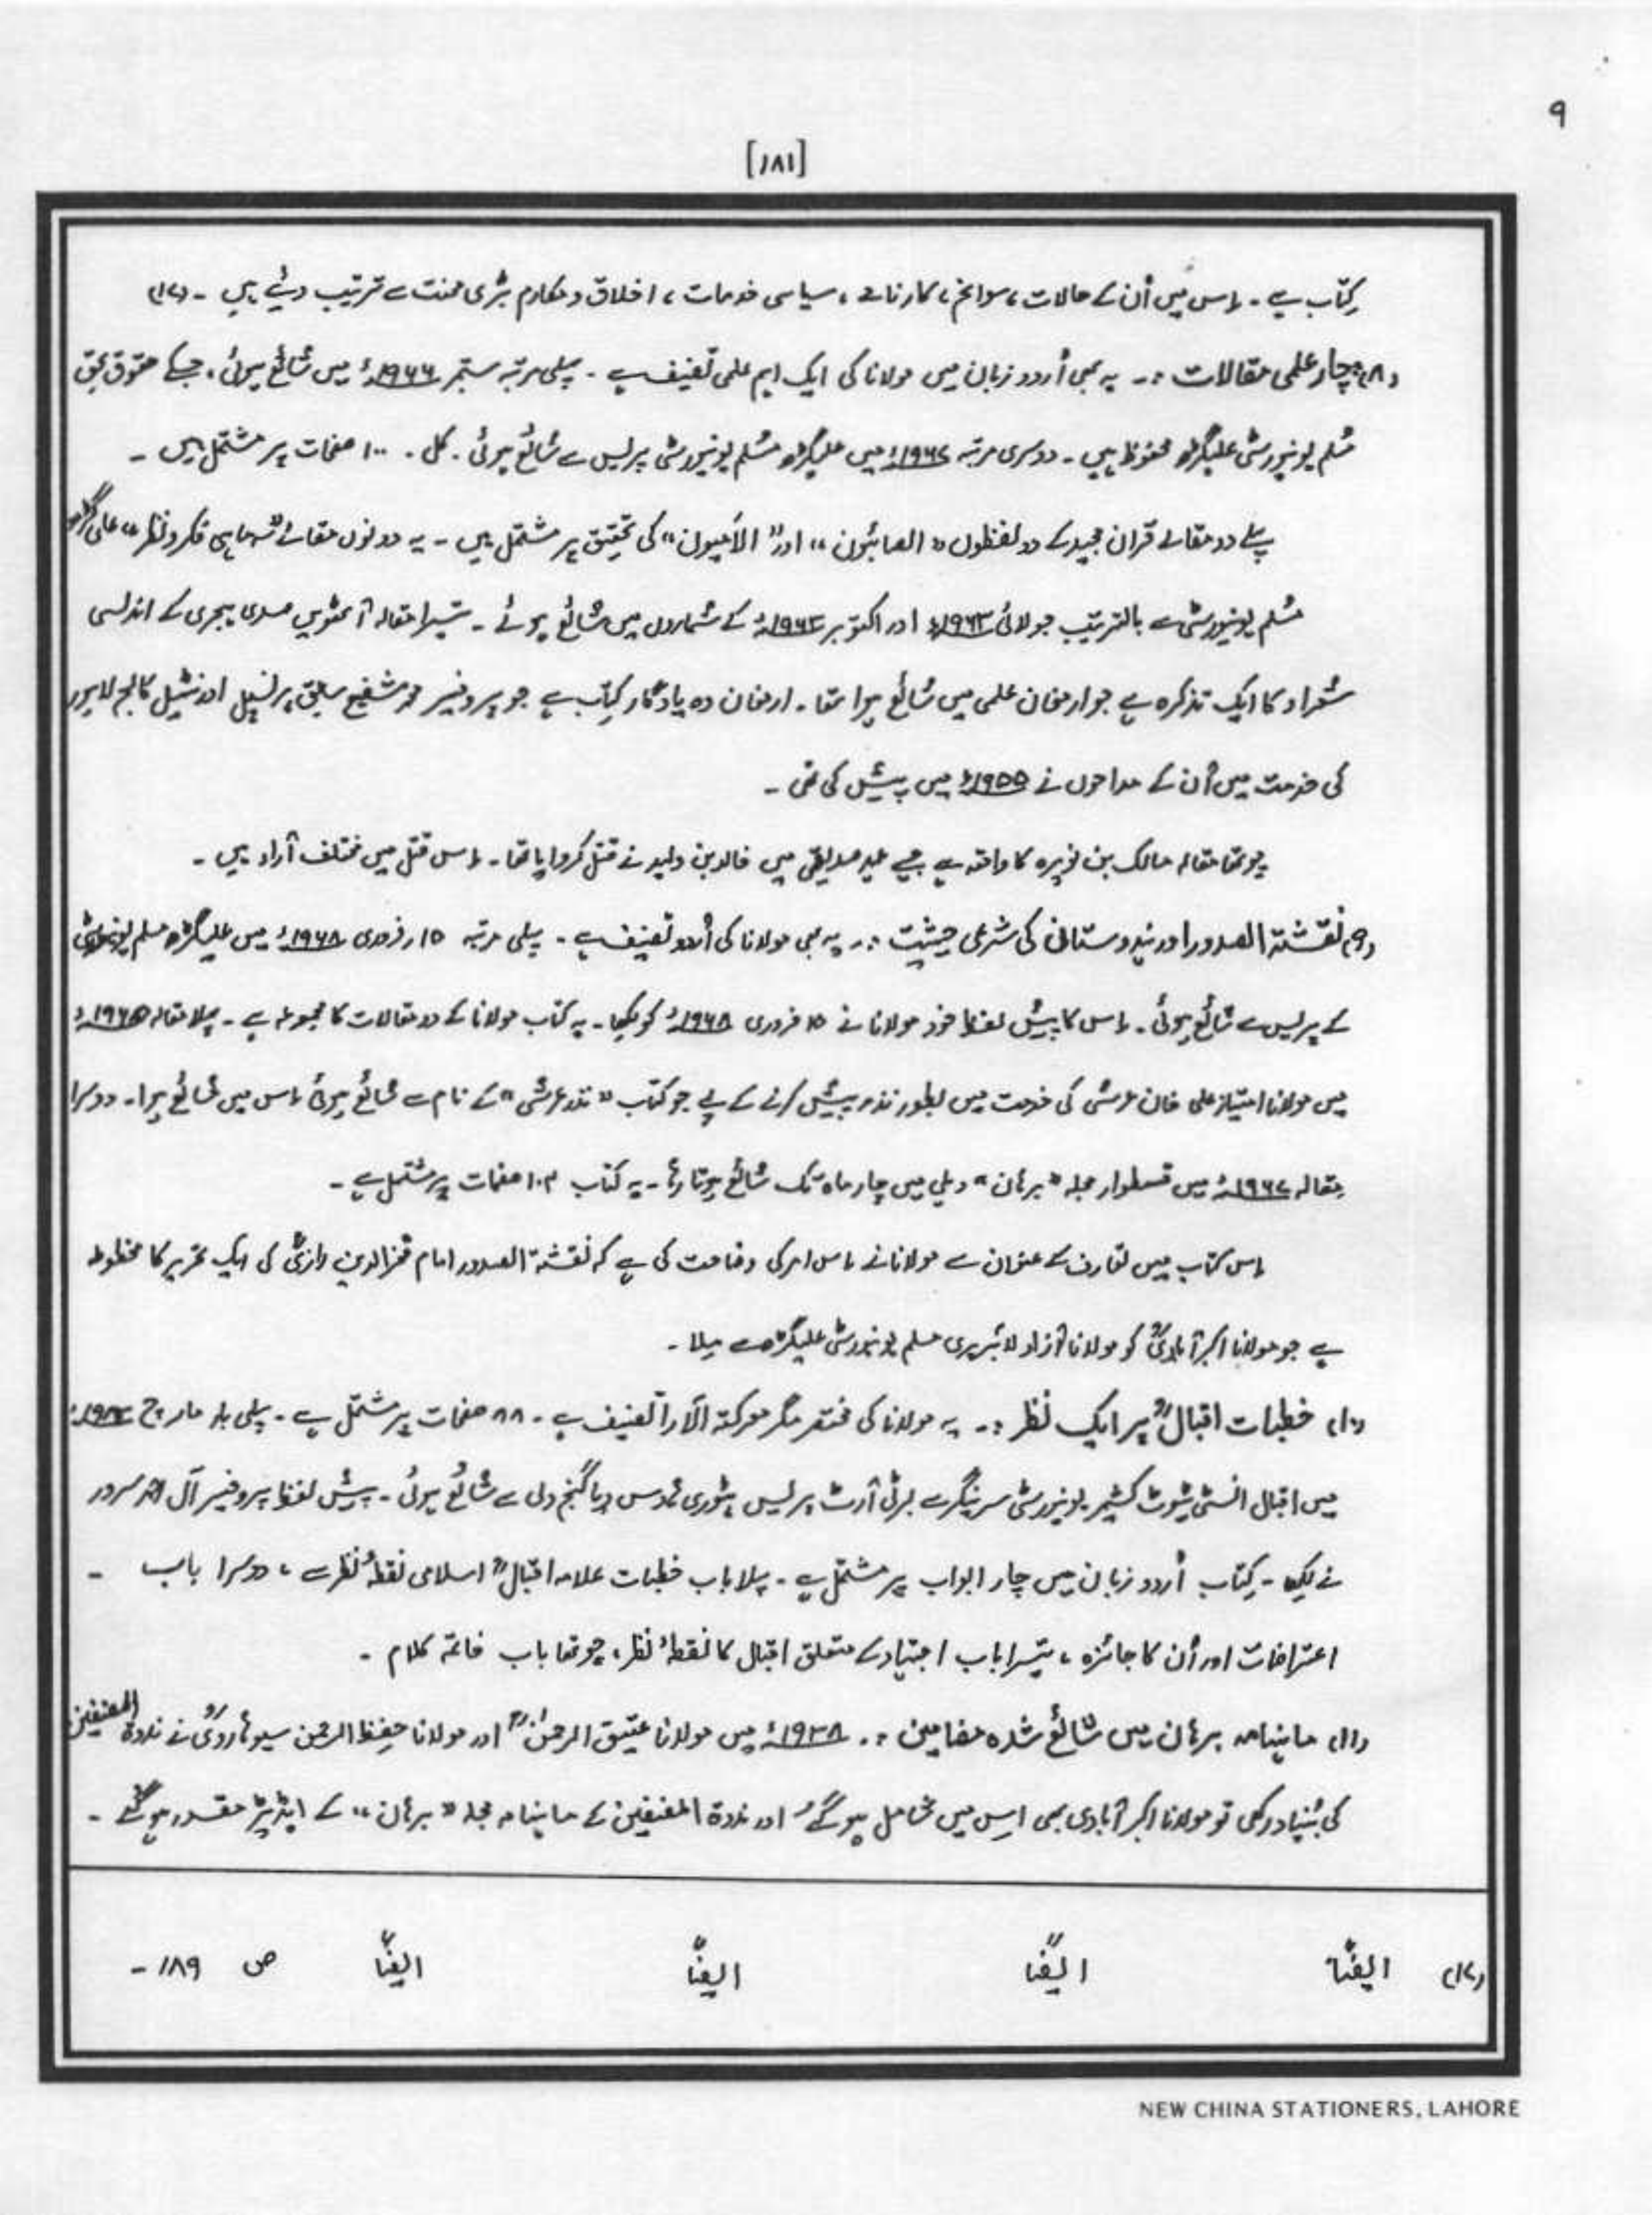 ۹
[۱۸۱]
کتاب ہے۔ اس میں اُن کے حالات، سوانح، کارنامے، سیاسی خدمات، اخلاق و مکارم بڑی محنت سے ترتیب دیئے ہیں۔ (۱۷)
(۸) چار علمی مقالات :۔ یہ بھی اُردو زبان میں مولانا کی ایک اہم علمی تصنیف ہے۔ پہلی مرتبہ ستمبر ۱۹۶۶ء میں شائع ہوئی، جسکے حقوق بحق
مُسلم یونیورسٹی علیگڑھ محفوظ ہیں۔ دوسری مرتبہ ۱۹۶۷ء میں علیگڑھ مُسلم یونیورسٹی پریس سے شائع ہوئی۔ کل ۱۰۰ صفحات پر مشتمل ہیں۔
پہلے دو مقالے قران مجید کے دو لفظوں "الصابئون" اور "الأمیون" کی تحقیق پر مشتمل ہیں۔ یہ دونوں مقالے "سہ ماہی فکر و نظر" علی گڑھ
مُسلم یونیورسٹی سے بالترتیب جولائی ۱۹۶۳ء اور اکتوبر ۱۹۶۳ء کے شماروں میں شائع ہوئے۔ تیسرا مقالہ آٹھویں صدی ہجری کے اندلسی
شعراء کا ایک تذکرہ ہے جو ارمغان علمی میں شائع ہوا تھا۔ ارمغان وہ یادگار کتاب ہے جو پروفیسر محمد شفیع سابق پرنسپل اورنٹیل کالج لاہور
کی خدمت میں اُن کے مداحوں نے ۱۹۵۵ء میں پیش کی تھی۔
چوتھا مقالہ مالک بن نویرہ کا واقعہ ہے جسے عہد صدیقی میں خالد بن ولید نے قتل کروایا تھا۔ اس قتل میں مختلف آراء ہیں۔
(۹) نفثتہ الصدور اور ہندوستان کی شرعی حیثیت :۔ یہ بھی مولانا کی اُردو تصنیف ہے۔ پہلی مرتبہ ۱۵ر فروری ۱۹۶۸ء میں علیگڑھ مسلم یونیورسٹی
کے پریس سے شائع ہوئی۔ اس کا پیش لفظ خود مولانا نے ۱۵ فروری ۱۹۶۸ء کو لکھا۔ یہ کتاب مولانا کے دو مقالات کا مجموعہ ہے۔ پہلا مقالہ ۱۹۶۵ء
میں مولانا امتیاز علی خان عرشی کی خدمت میں بطور نذر پیش کرنے کے لیے جو کتاب "نذر عرشی" کے نام سے شائع ہوئی اس میں شائع ہوا۔ دوسرا
مقالہ ۱۹۶۷ء میں قسطوار مجلہ "برہان" دہلی میں چار ماہ تک شائع ہوتا رہا۔ یہ کتاب ۱۰۴ صفحات پر مشتمل ہے۔
اس کتاب میں تعارف کے عنوان سے مولانا نے اس امر کی وضاحت کی ہے کہ نفثتہ الصدور امام فخرالدین رازیؒ کی ایک تحریر کا مخطوطہ
ہے جو مولانا اکبر آبادیؒ کو مولانا آزاد لائبریری مسلم یونیورسٹی علیگڑھ سے ملا۔
(۱۰) خطبات اقبالؒ پر ایک نظر :۔ یہ مولانا کی مختصر مگر معرکتہ الآرا تصنیف ہے۔ ۸۸ صفحات پر مشتمل ہے۔ پہلی بار مارچ
میں اقبال انسٹی ٹیوٹ کشمیر یونیورسٹی سرینگر سے برٹی آرٹ پریس پٹودی ہاوس دریا گنج دلی سے شائع ہوئی۔ پیش لفظ پروفیسر آل احمد سرور
نے لکھا۔ کتاب اُردو زبان میں چار ابواب پر مشتمل ہے۔ پہلا باب خطبات علامہ اقبالؒ اسلامی نقطۂ نظر سے، دوسرا باب -
اعتراضات اور اُن کا جائزہ، تیسرا باب اجتہاد کے متعلق اقبال کا نقطۂ نظر، چوتھا باب خاتمہ کلام۔
(۱۱) ماہنامہ برہان میں شائع شدہ مضامین :۔ ۱۹۳۸ء میں مولانا عتیق الرحمٰنؒ اور مولانا حفظ الرحمن سیوہارویؒ نے ندوۃ المصنفین
کی بُنیاد رکھی تو مولانا اکبر آبادی بھی اِس میں شامل ہو گئے اور ندوۃ المصنفین کے ماہنامہ مجلہ "برہان" کے ایڈیٹر مقرر ہو گئے۔
(۱۷) ایضاً ایضاً ایضاً ایضاً ص ۱۸۹۔
NEW CHINA STATIONERS, LAHORE